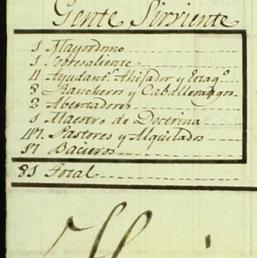 Gente Sirviente
1 Mayordomo
1 Sobresaliente
4 Ayudant. Avisador y Estaqº
8 Rancheros y Caballerangos
2 Aventadores
1 Maestro de Doctrina
47. Pastores y Alquilados
17 Bacieros
81 Total